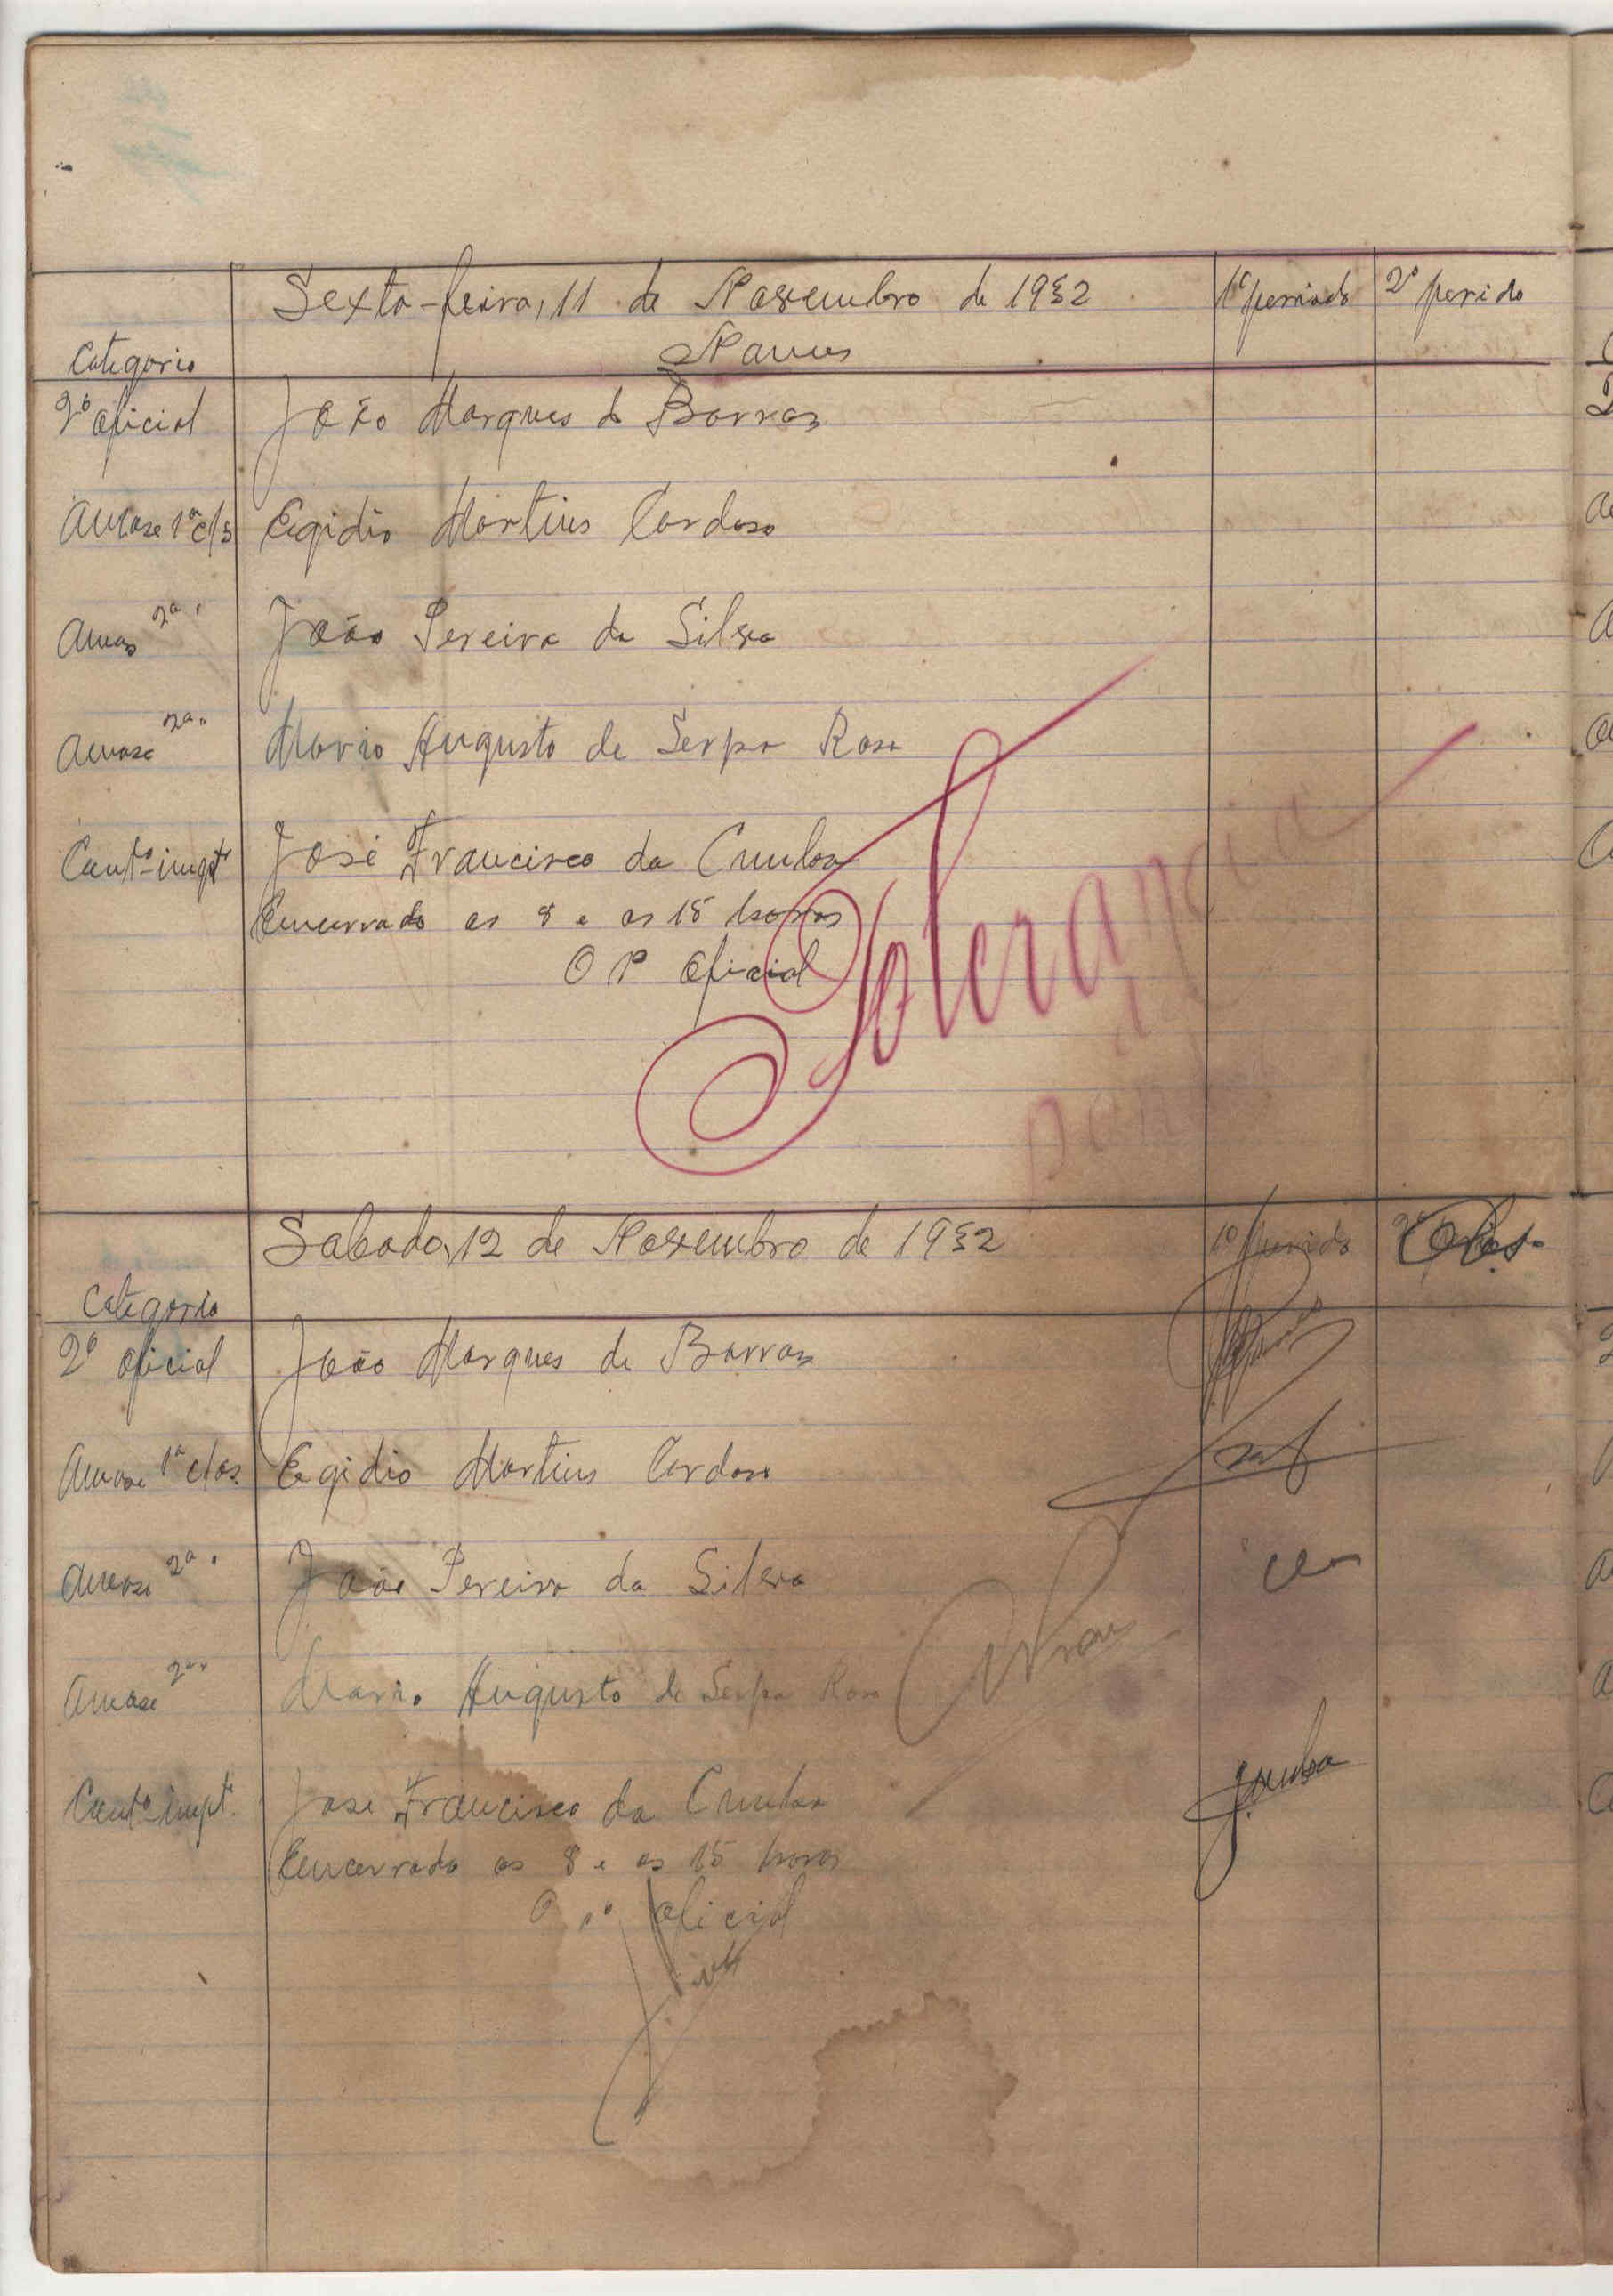 Sexta-feira, 11 de Novembro de 1932 1º periodo 2º perido
Categoria Nomes
2º Oficial João Marques de Barros
1ª cls Egidio Martins Cardoso
2ª João Pereira da Silva
2ª Mario Augusto de Serpa Rosa
Contº-impt José Francisco da Cunha
Encerrado as 8 e as 15 horas
O 1º Oficial
Tolerancia
de
ponto
Sabado, 12 de Novembro de 1932 1º perido 2º Obs.
Categoria
2º Oficial João Marques de Barros
1ª clas. Egidio Martins Cardoso
2ª João Pereira da Silva
2ª Mario Augusto de Serpa Rosa
Contº-impt. José Francisco da Cunha JCunha
Encerrado as 8 e as 15 horas
O 1º Oficial